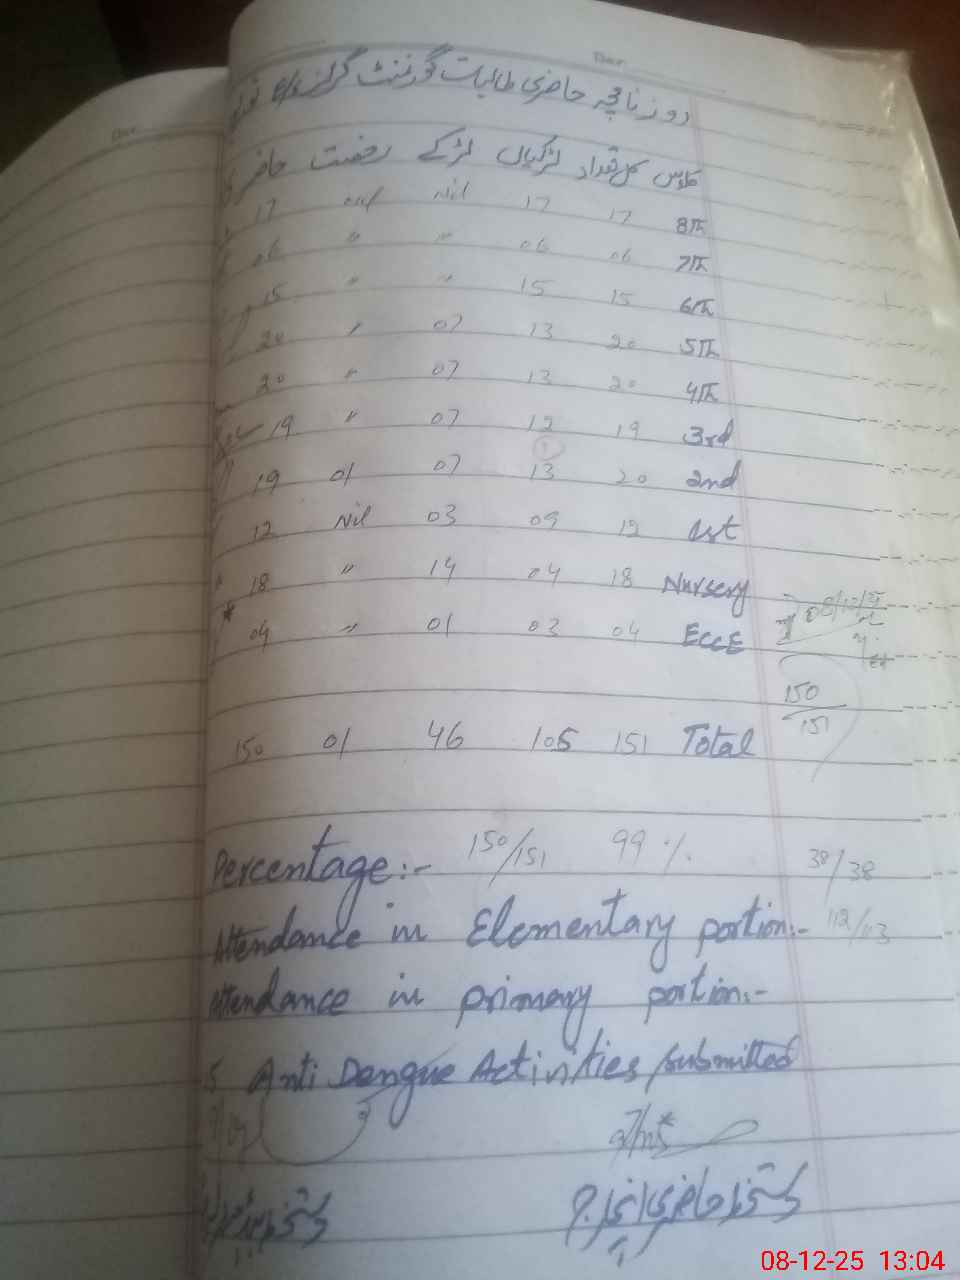 Dat
Dat
روزنامچہ حاضری طالبات گورنمنٹ گرلز
کلاس کل تعداد لڑکیاں لڑکے رخصت حاضر
8th 17 17 Nil Nil 17
7th 06 06 " " 06
6th 15 15 " " 15
5th 20 13 07 " 20
4th 20 13 07 " 20
3rd 19 12 07 " 19
2nd 20 13 07 01 19
1st 12 09 03 Nil 12
Nursery 18 04 14 " 18
ECCE 04 03 01 " 04
08/12/25
150/151
Total 151 105 46 01 150
Percentage:- 150/151 99 %
38/38
Attendance in Elementary portion:- 112/113
Attendance in primary portion:-
5 Anti Dengue Activities /submitted
دستخط حاضری انچارج
دستخط
08-12-25 13:04